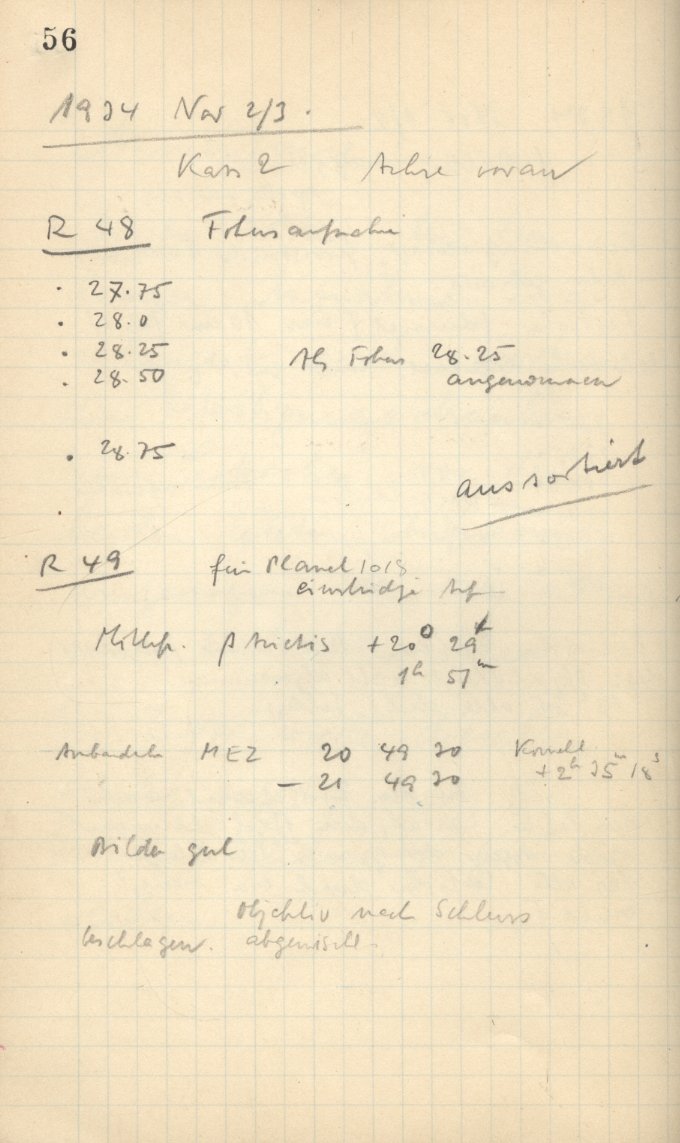 56
1934 Nov 2/3.
Kass 2 Achse voran
R 48 Fokusaufnahme
. 27.75
. 28.0
. 28.25
. 28.50
Als Fokus 28.25
angenommen
. 28.75
aussortiert
R 49 für Planet 1018
einstündige Auf
Mittelp. β Arietis +20° 29'
1h 51m
MEZ 20 49 30
– 21 49 30
+2h 35m 18s
Bilder gut
Objektiv nach Schluss
beschlagen. abgewischt.